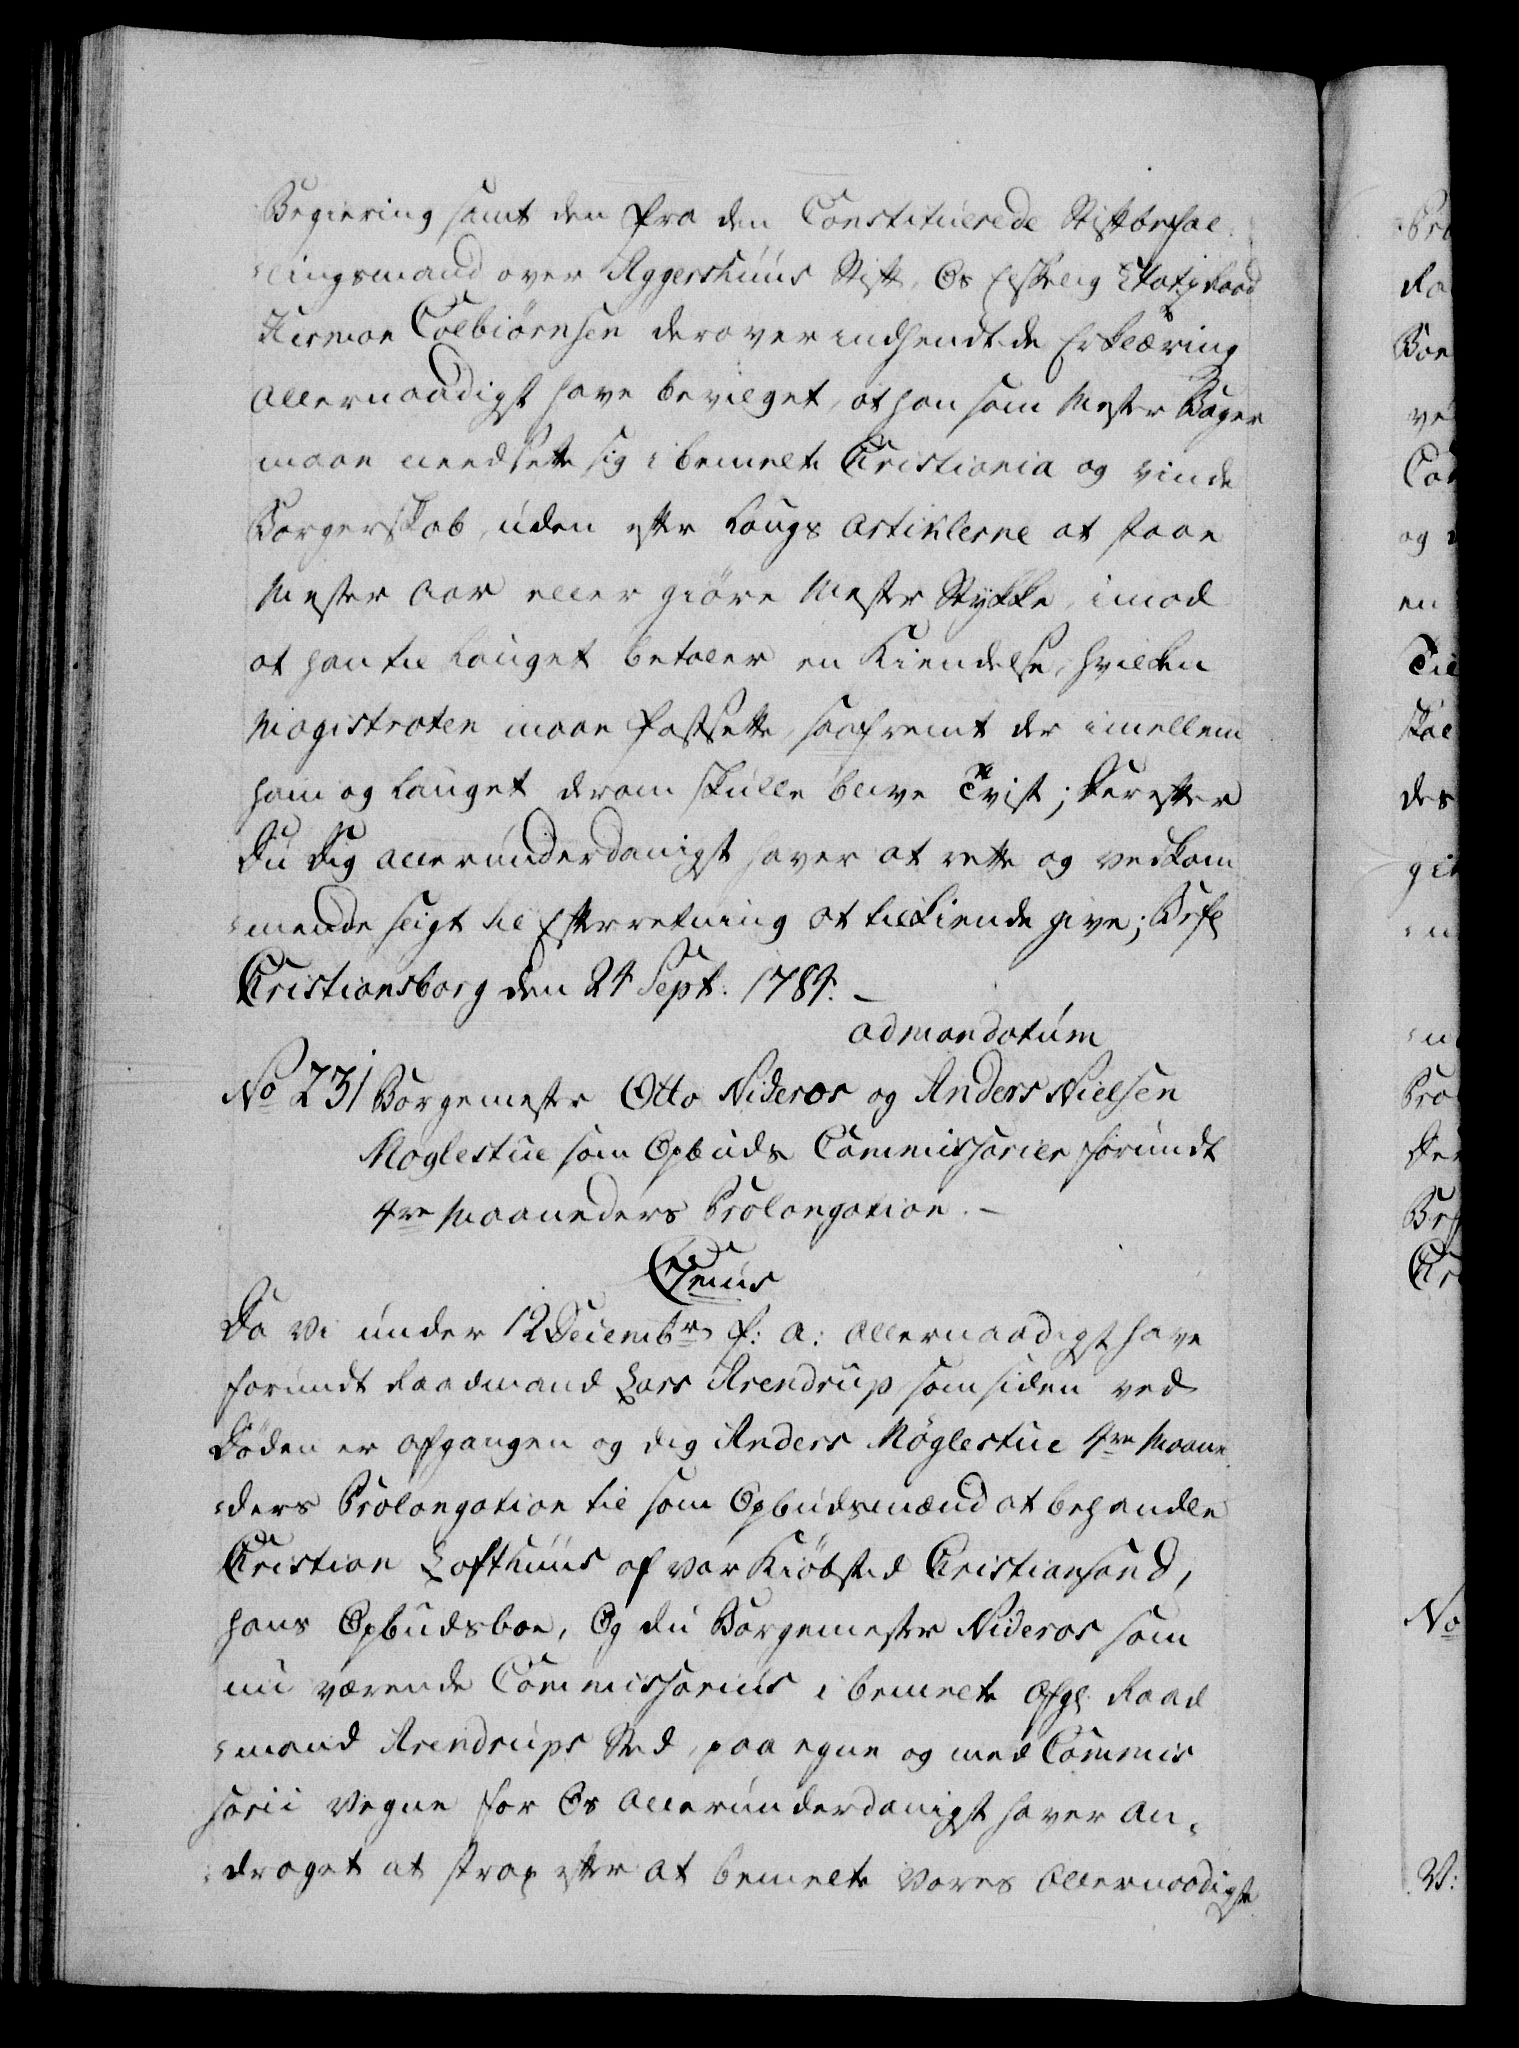 Begiering samt den fra den Constituerede Stiftbefal¬
¬lingsmand over Aggershuus Stift, Os Elskelig Etatz Raad
Herman Colbiørnsen derover indhendtede Erklæring
allernaadigst have bevilget, at han som Mester Bager
maae needsette sig i bemelte Christiania og vinde
Borgerskab, uden efter Laugs Artiklerne at staae
Mester Aar eller giøre Mester Stykke, imod
at han til Lauget betaler en Kiendelse, hvilken
Magistraten maae fastsette, saafremt der imellem
ham og Lauget derom skulle blive Tvist; Derefter
Du Dig allerunderdanigst haver at rette og vedkom
¬mende sligt til Efterretning at tilkiende give; Befl
Christiansborg den 24 Sept. 1784. —
ad mandatum
No 231 Borgemester Otto Nideros og Anders Nielsen
Møglestue som Opbuds Commissarier forundt
4re Maaneders Prolongation. —
C7mus
Da Vi under 12 Decembr f: a: allernaadigst have
forundt Raadmand Lars Arendrup som siden ved
Døden er afgangen og dig Anders Møglestue 4re Maane
¬ders Prolongation til som Opbudsmænd at behandle
Christian Lofthuus af vor Kiøbsted Christiansand,
hans Opbudsboe, Og du Borgemester Nideros som
nu værende Commissarius i bemelte Afgl. Raad
¬mand Arendrups Sted, paa egne og med Commis
sarii Vegne for Os allerunderdanigst haver an¬
¬draget at strax efter at bemelte Vores Allernaadigste